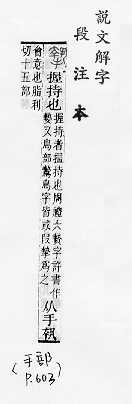 說文解字
段注本
摯握持也握持者搤持也周禮六摯字許書作
又鳥部鷙鳥字皆或叚摯爲之从手執
會意也脂利
切十五部
(手部
P.603)